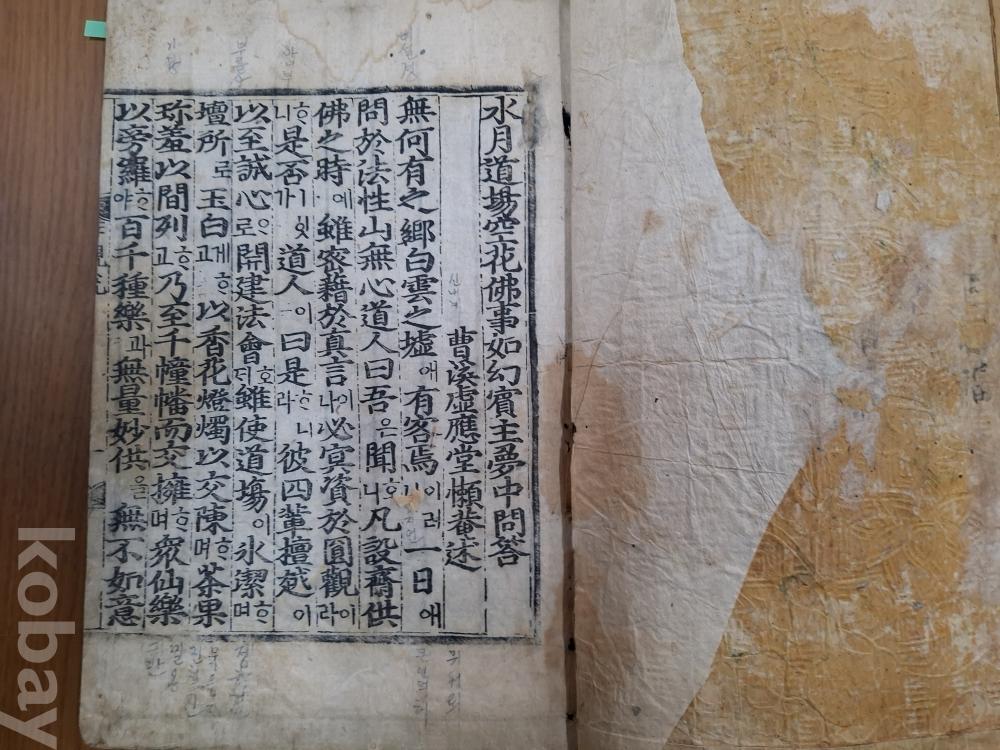 水月道場空花佛事如幻賓主夢中問答
曹溪虛應堂懶菴述
無何有之鄕白雲之墟애有客焉이러一日애
問於法性山無心道人曰吾은聞ᄒᆞ니凡設齋供
佛之時에雖密藉於真言이나必冥資於圓觀이라
ᄒᆞ니是否잇가道人이曰是ᄒᆞ니라彼四輩擅越이
以至誠心ᄋᆞ로開建法會호ᄃᆡ雖使道塲이氷潔ᄒᆞ며
壇所로玉白ᄒᆞ게고以香花燈燭以交陳ᄒᆞ며茶果
珎羞以間列ᄒᆞ고乃至千幢幡而交擁ᄒᆞ며衆仙樂
以旁羅ᄒᆞ야百千種樂과無量妙供을無不如意
kobay